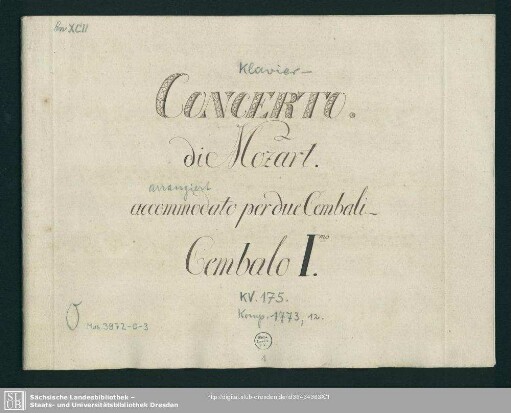 Klavier-
CONCERTO.
di Mozart.
arrangiert
accommodato per due Cembali
Cembalo I.mo
KV. 175.
Komp. 1773, 12.
Mus 3972-O-3
1
Sächsische Landesbibliothek –
Staats- und Universitätsbibliothek Dresden